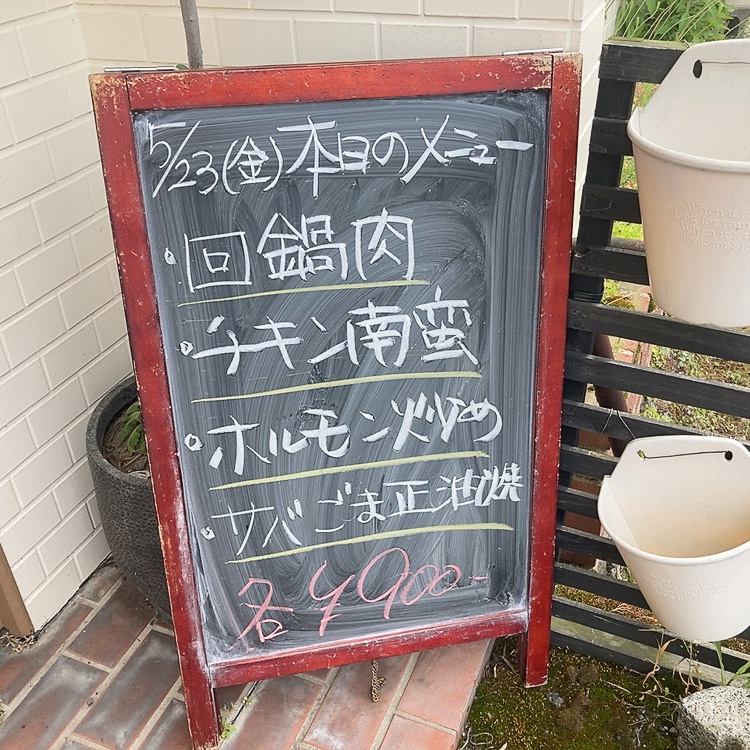 5/23(金)本日のメニュー
・回鍋肉
・チキン南蛮
・ホルモン炒め
・サバごま正油焼
各¥900-